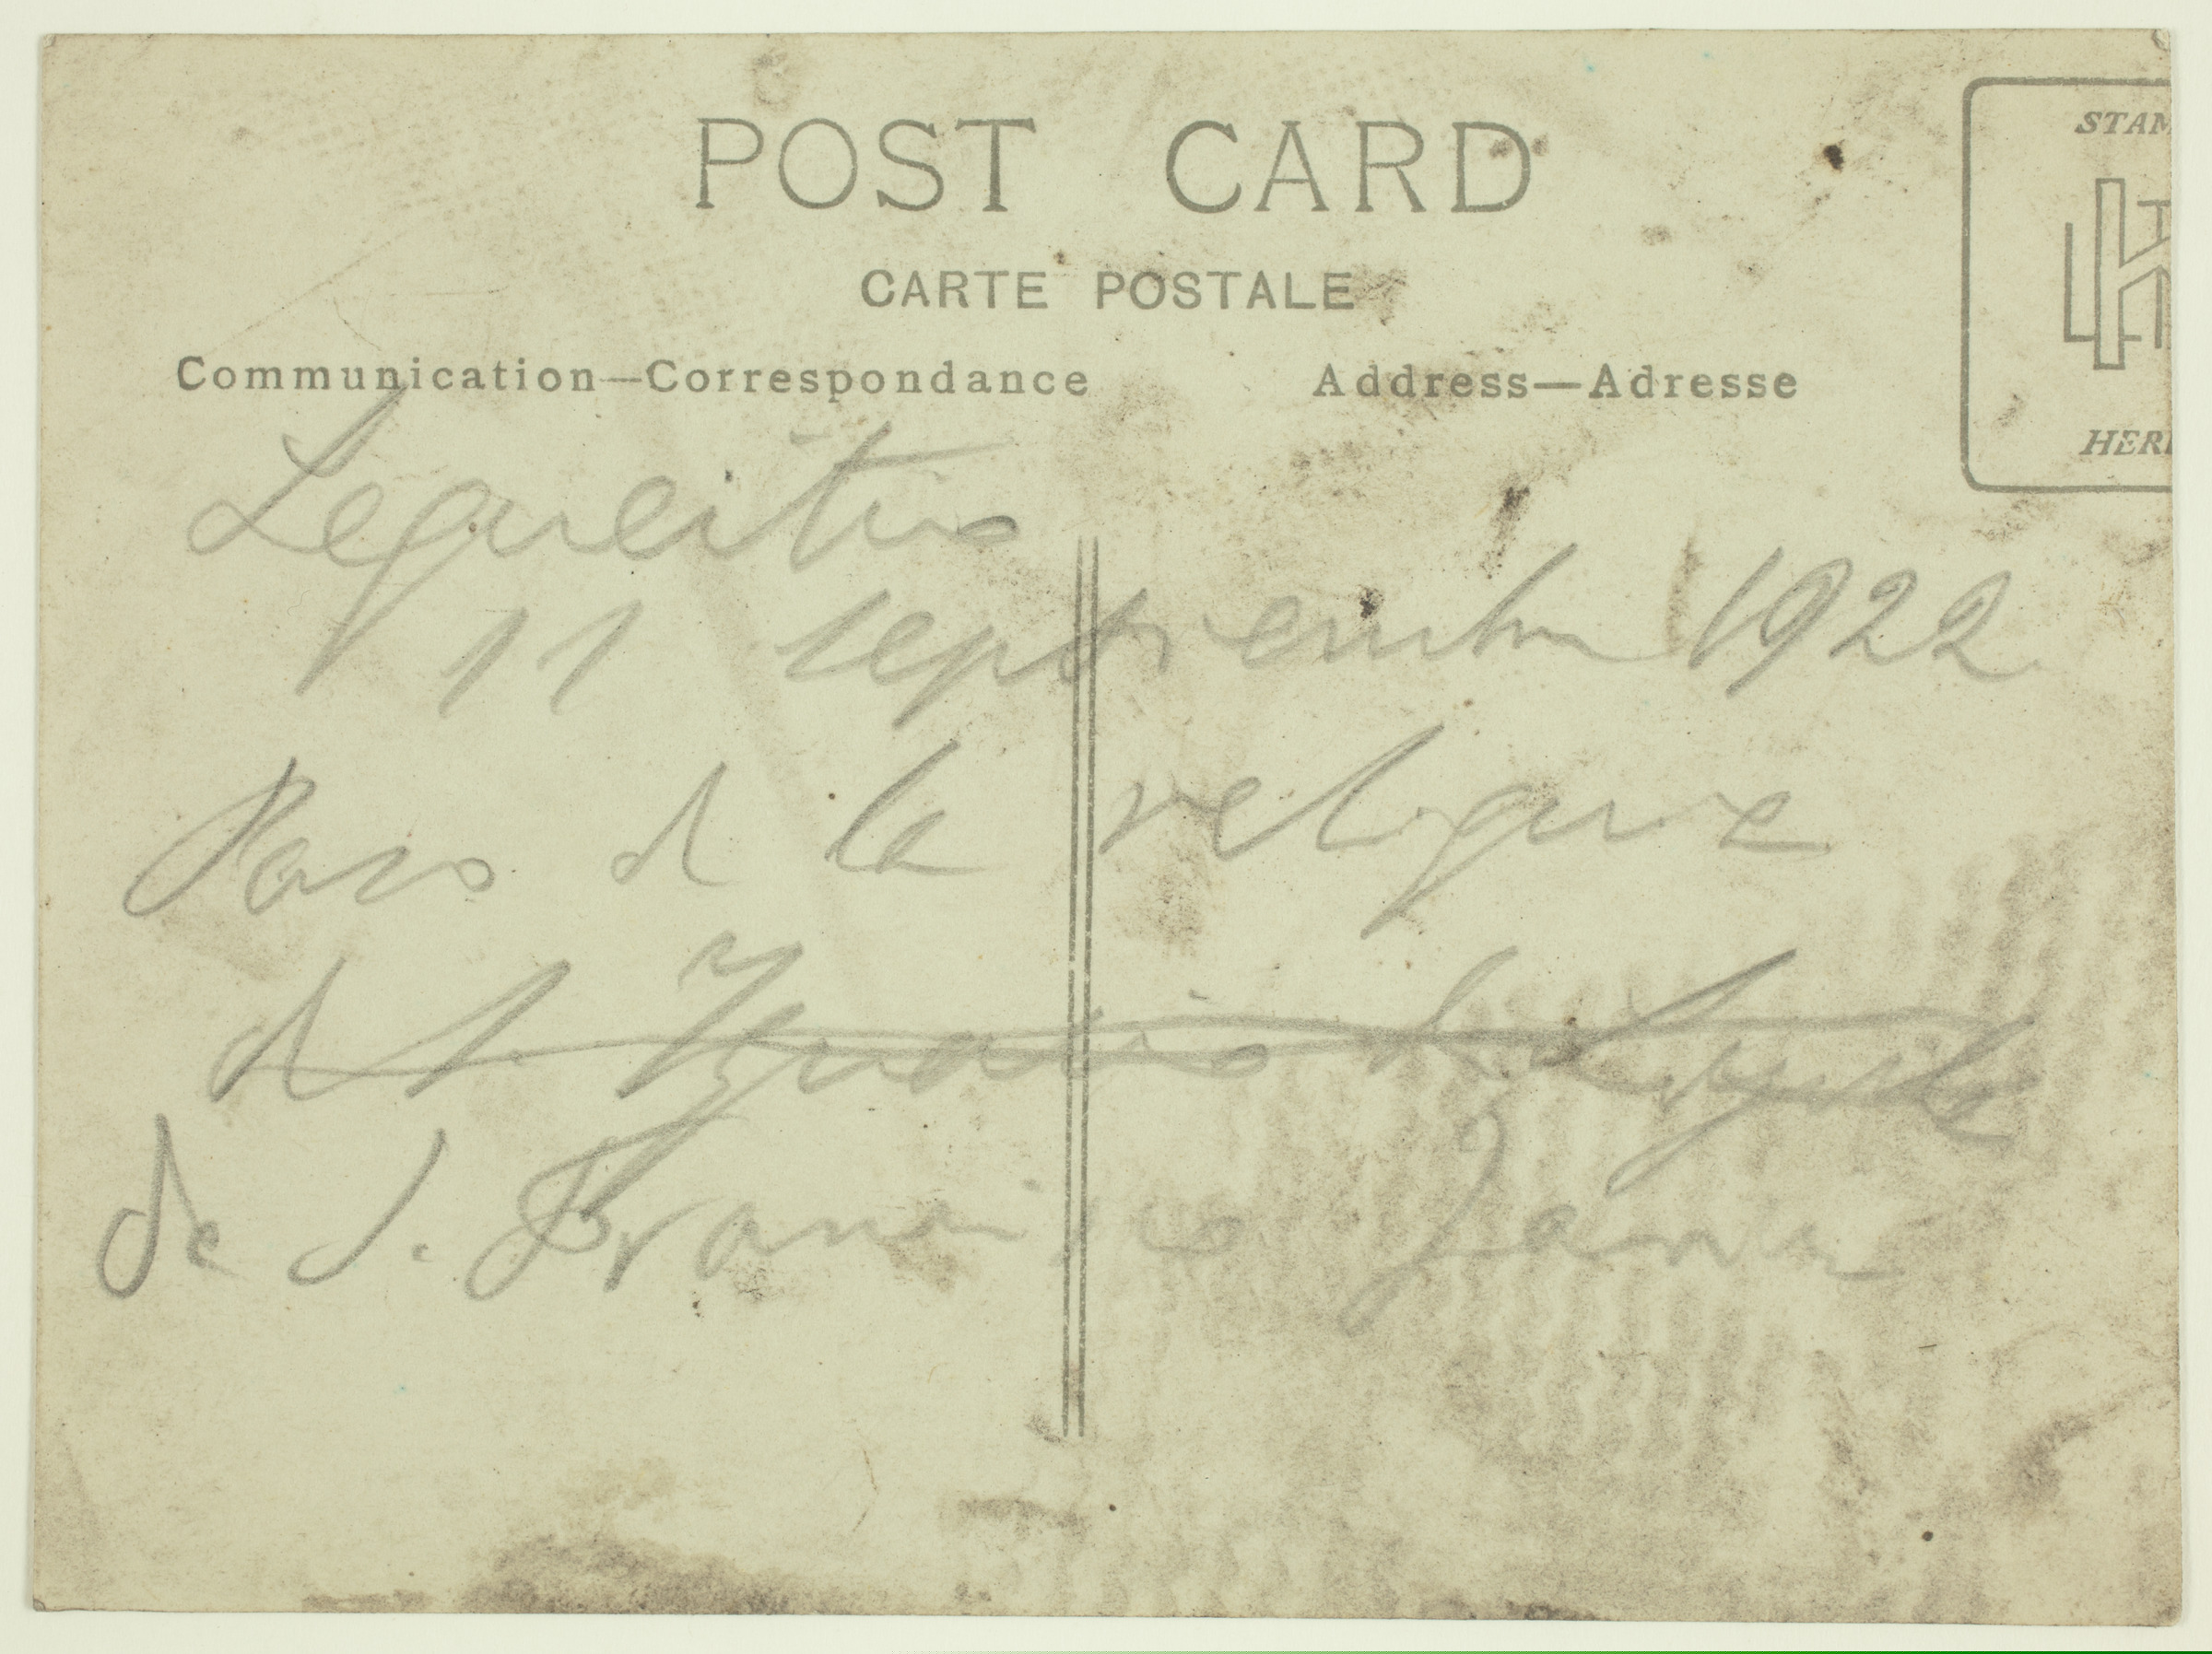 POST CARD
STAM
CARTE POSTALE
Communication—Correspondance
Address—Adresse
HER
Lequeitio
11 septiembre 1922
Paso de la reliquia
de S. Ignacio de Loyola
de S. Francisco Javier